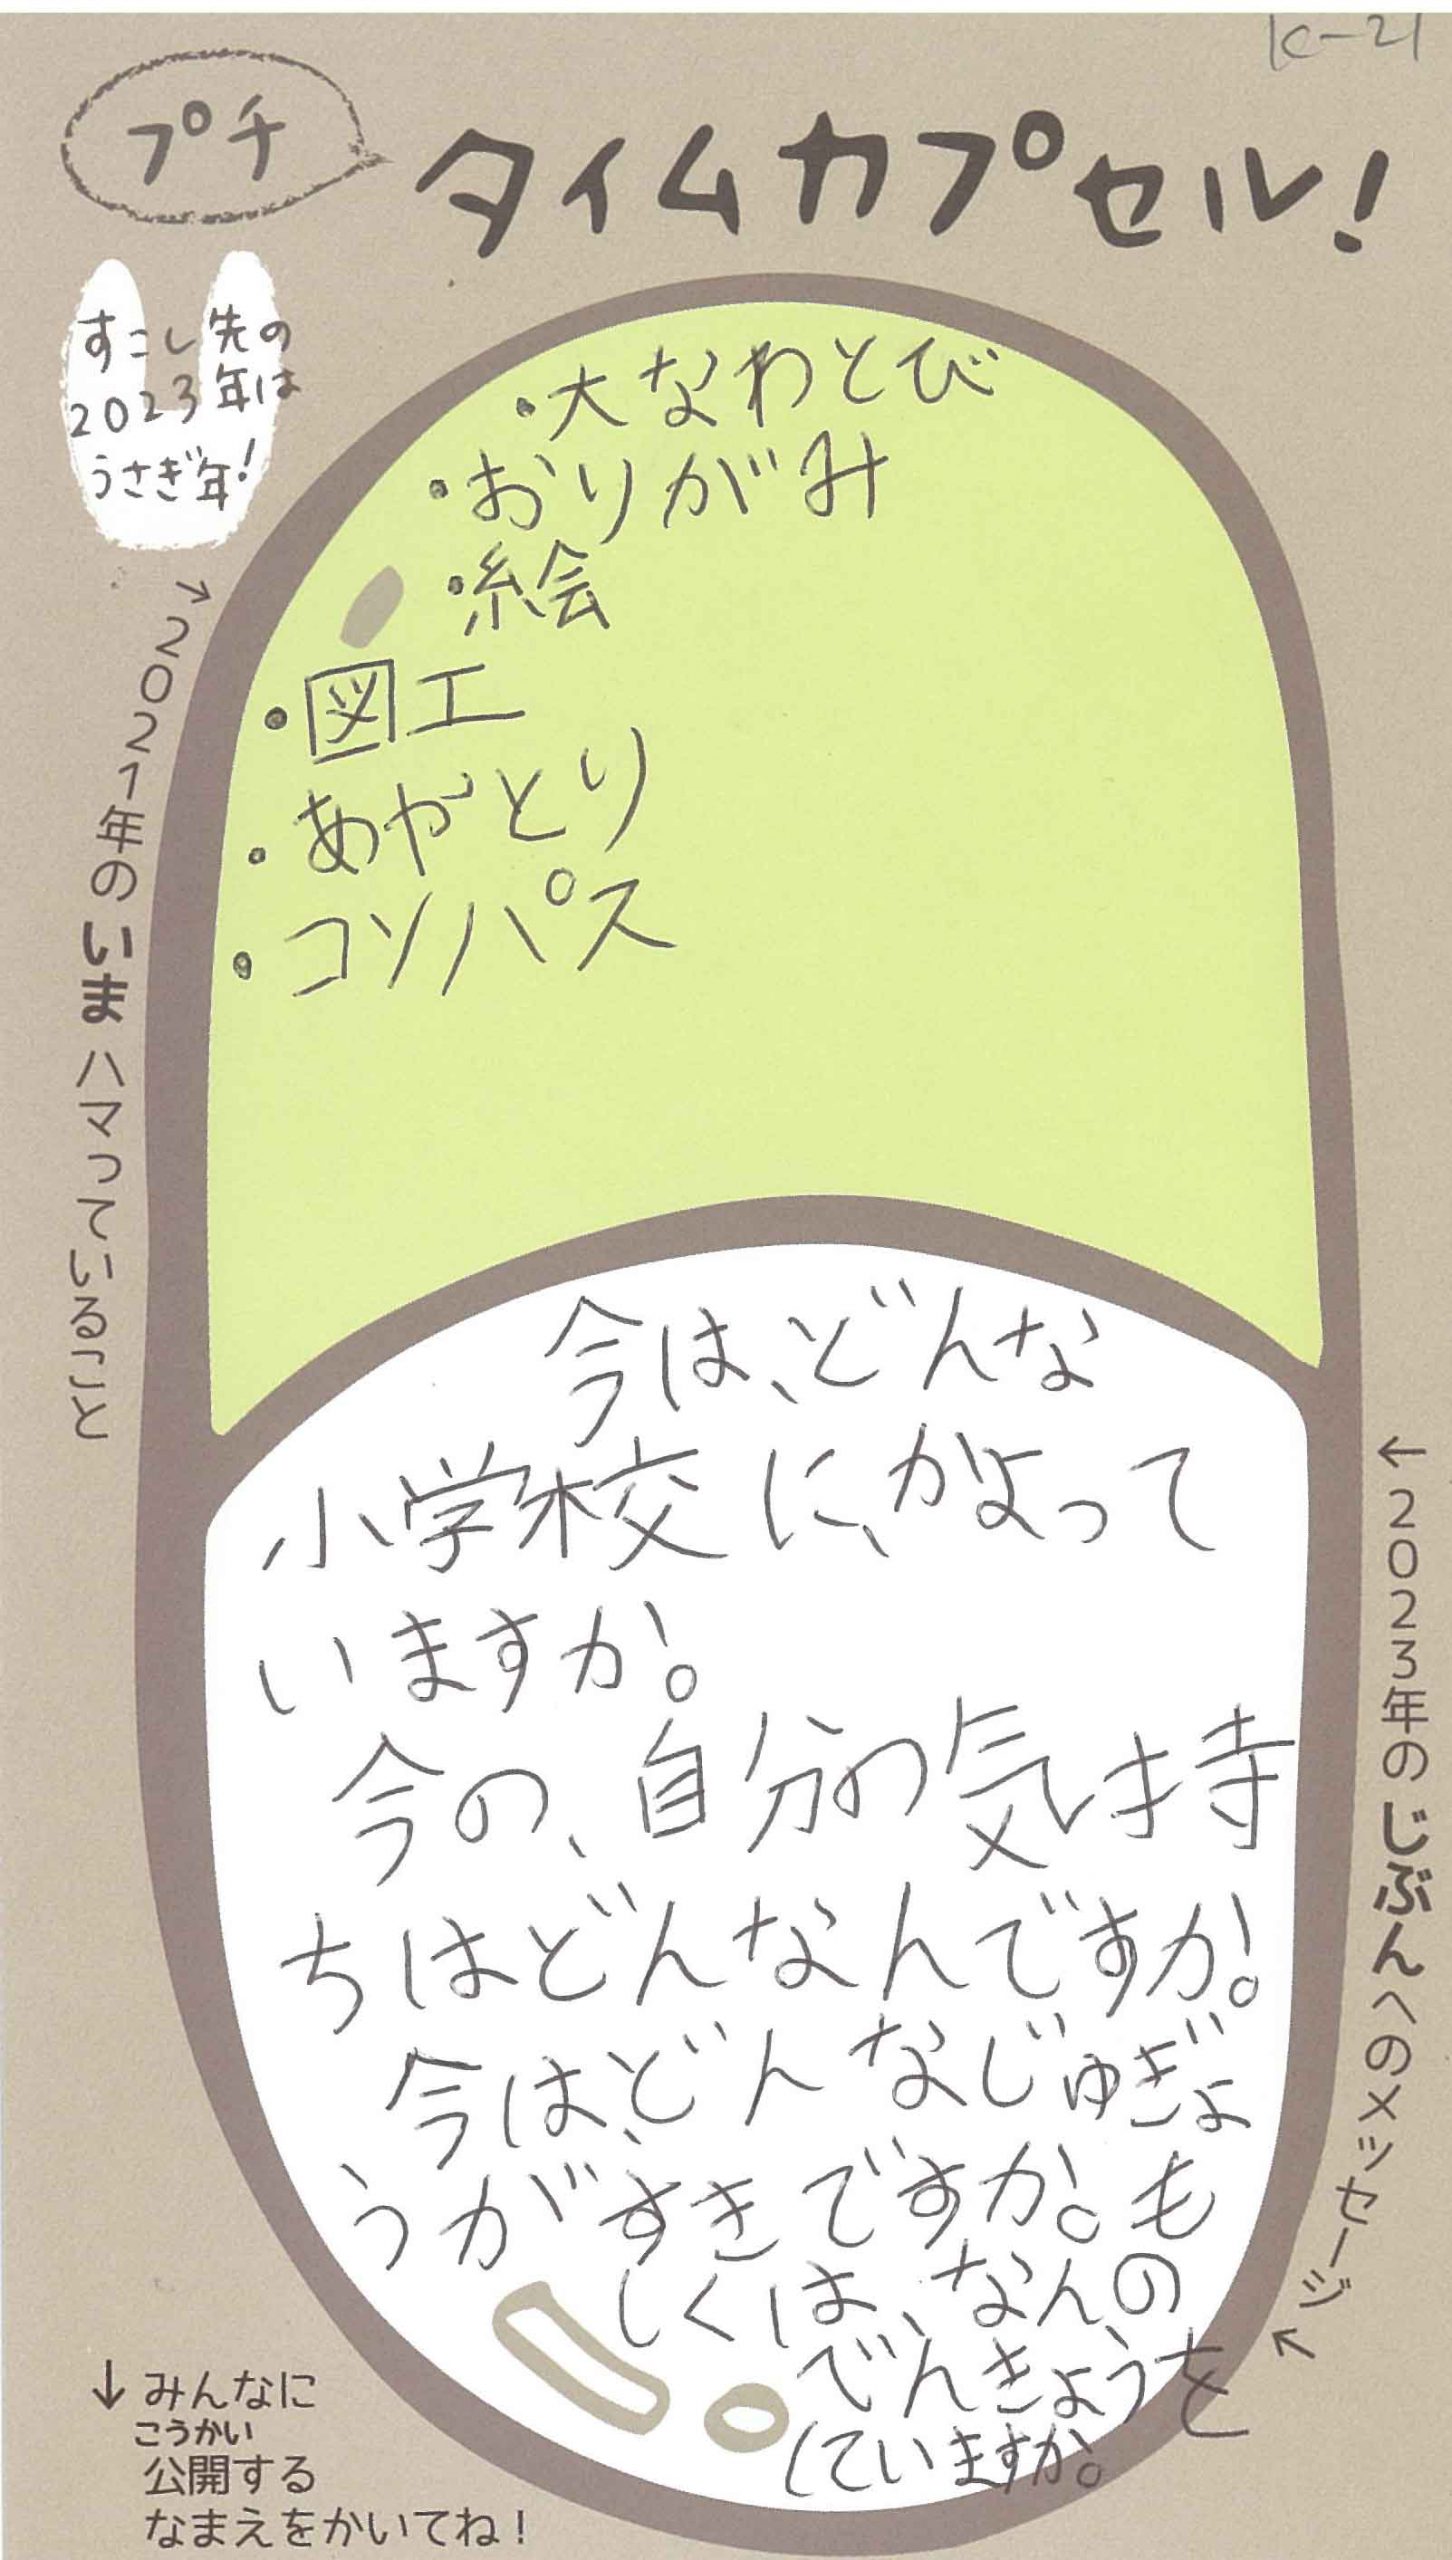 K-21
プチ
タイムカプセル!
すこし先の
2023年は
うさぎ年!
→2021年のいまハマっていること
・大なわとび
・おりがみ
・絵
・図工
・あやとり
・コンパス
今は、どんな
小学校に、かよって
いますか。
今の、自分の気持
ちはどんなんですか。
今は、どんなじゅぎょ
うがすきですか。も
しくは、なんの
べんきょうを
していますか。
←2023年のじぶんへのメッセージ
↓みんなに
こうかい
公開する
なまえをかいてね!